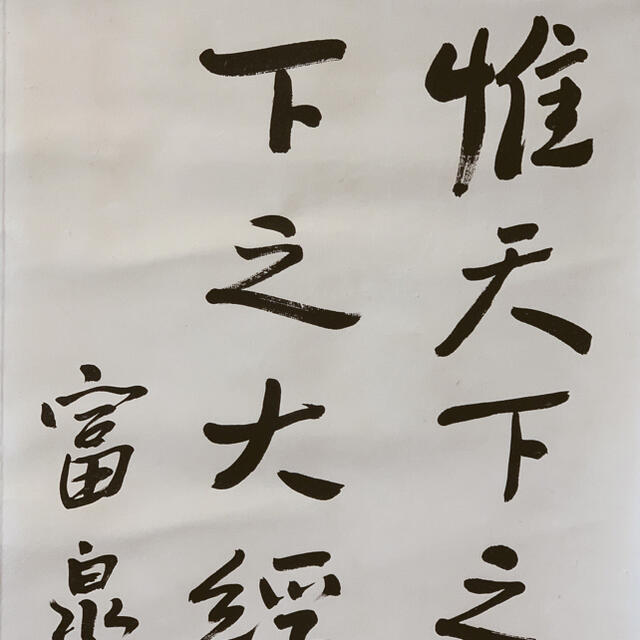 惟天下之
下之大經
富泉